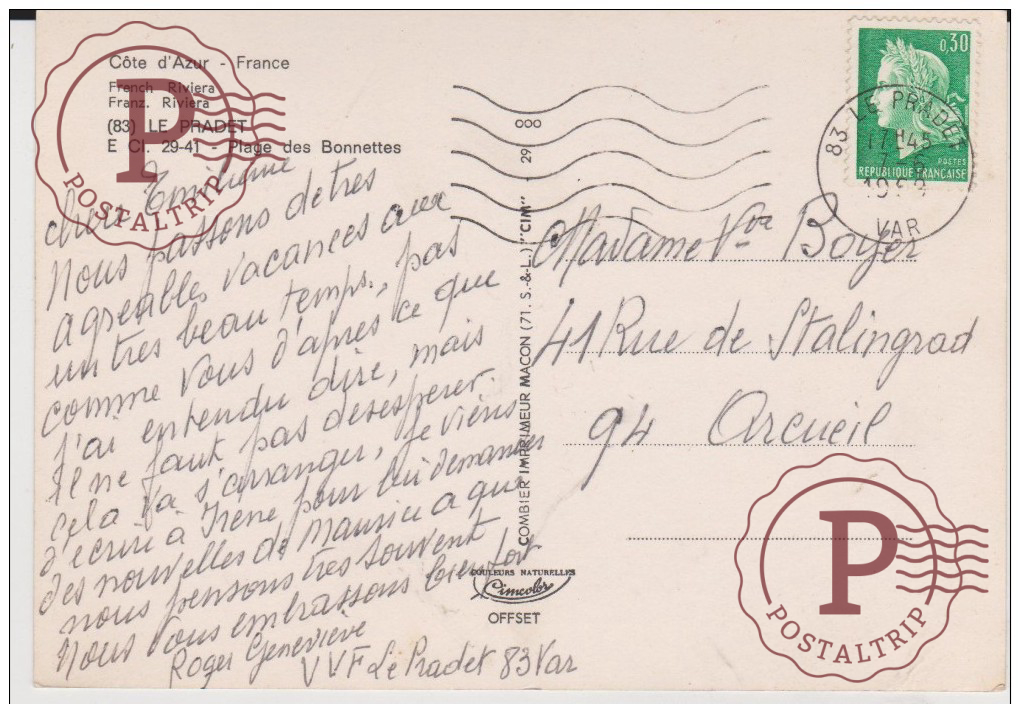 Côte d'Azur - France
French Riviera
Franz. Riviera
(83) LE PRADET
E CI. 29-41 - Plage des Bonnettes
chère
Nous passons de tres
agreables vacances avec
un tres beau temps, pas
comme vous d'après ce que
j'ai entendu dire, mais
il ne faut pas desesperer.
cela va s'arranger, je viens
d'écrire à Irene pour lui demander
des nouvelles de Maurice a qui
nous pensons tres souvent
Nous vous embrassons bientot
Roger Geneviève
VVF Le Pradet 83 Var
COMBIER IMPRIMEUR MACON (71. S.-&-L.) "CIM"
29
000
COULEURS NATURELLES
Cimcolor
OFFSET
0,30
POSTES
REPUBLIQUE FRANÇAISE
83 LE PRADET
17H45
VAR
Madame Vve Boyer
41 Rue de Stalingrad
94 Arcueil
P
POSTALTRIP
P
POSTALTRIP